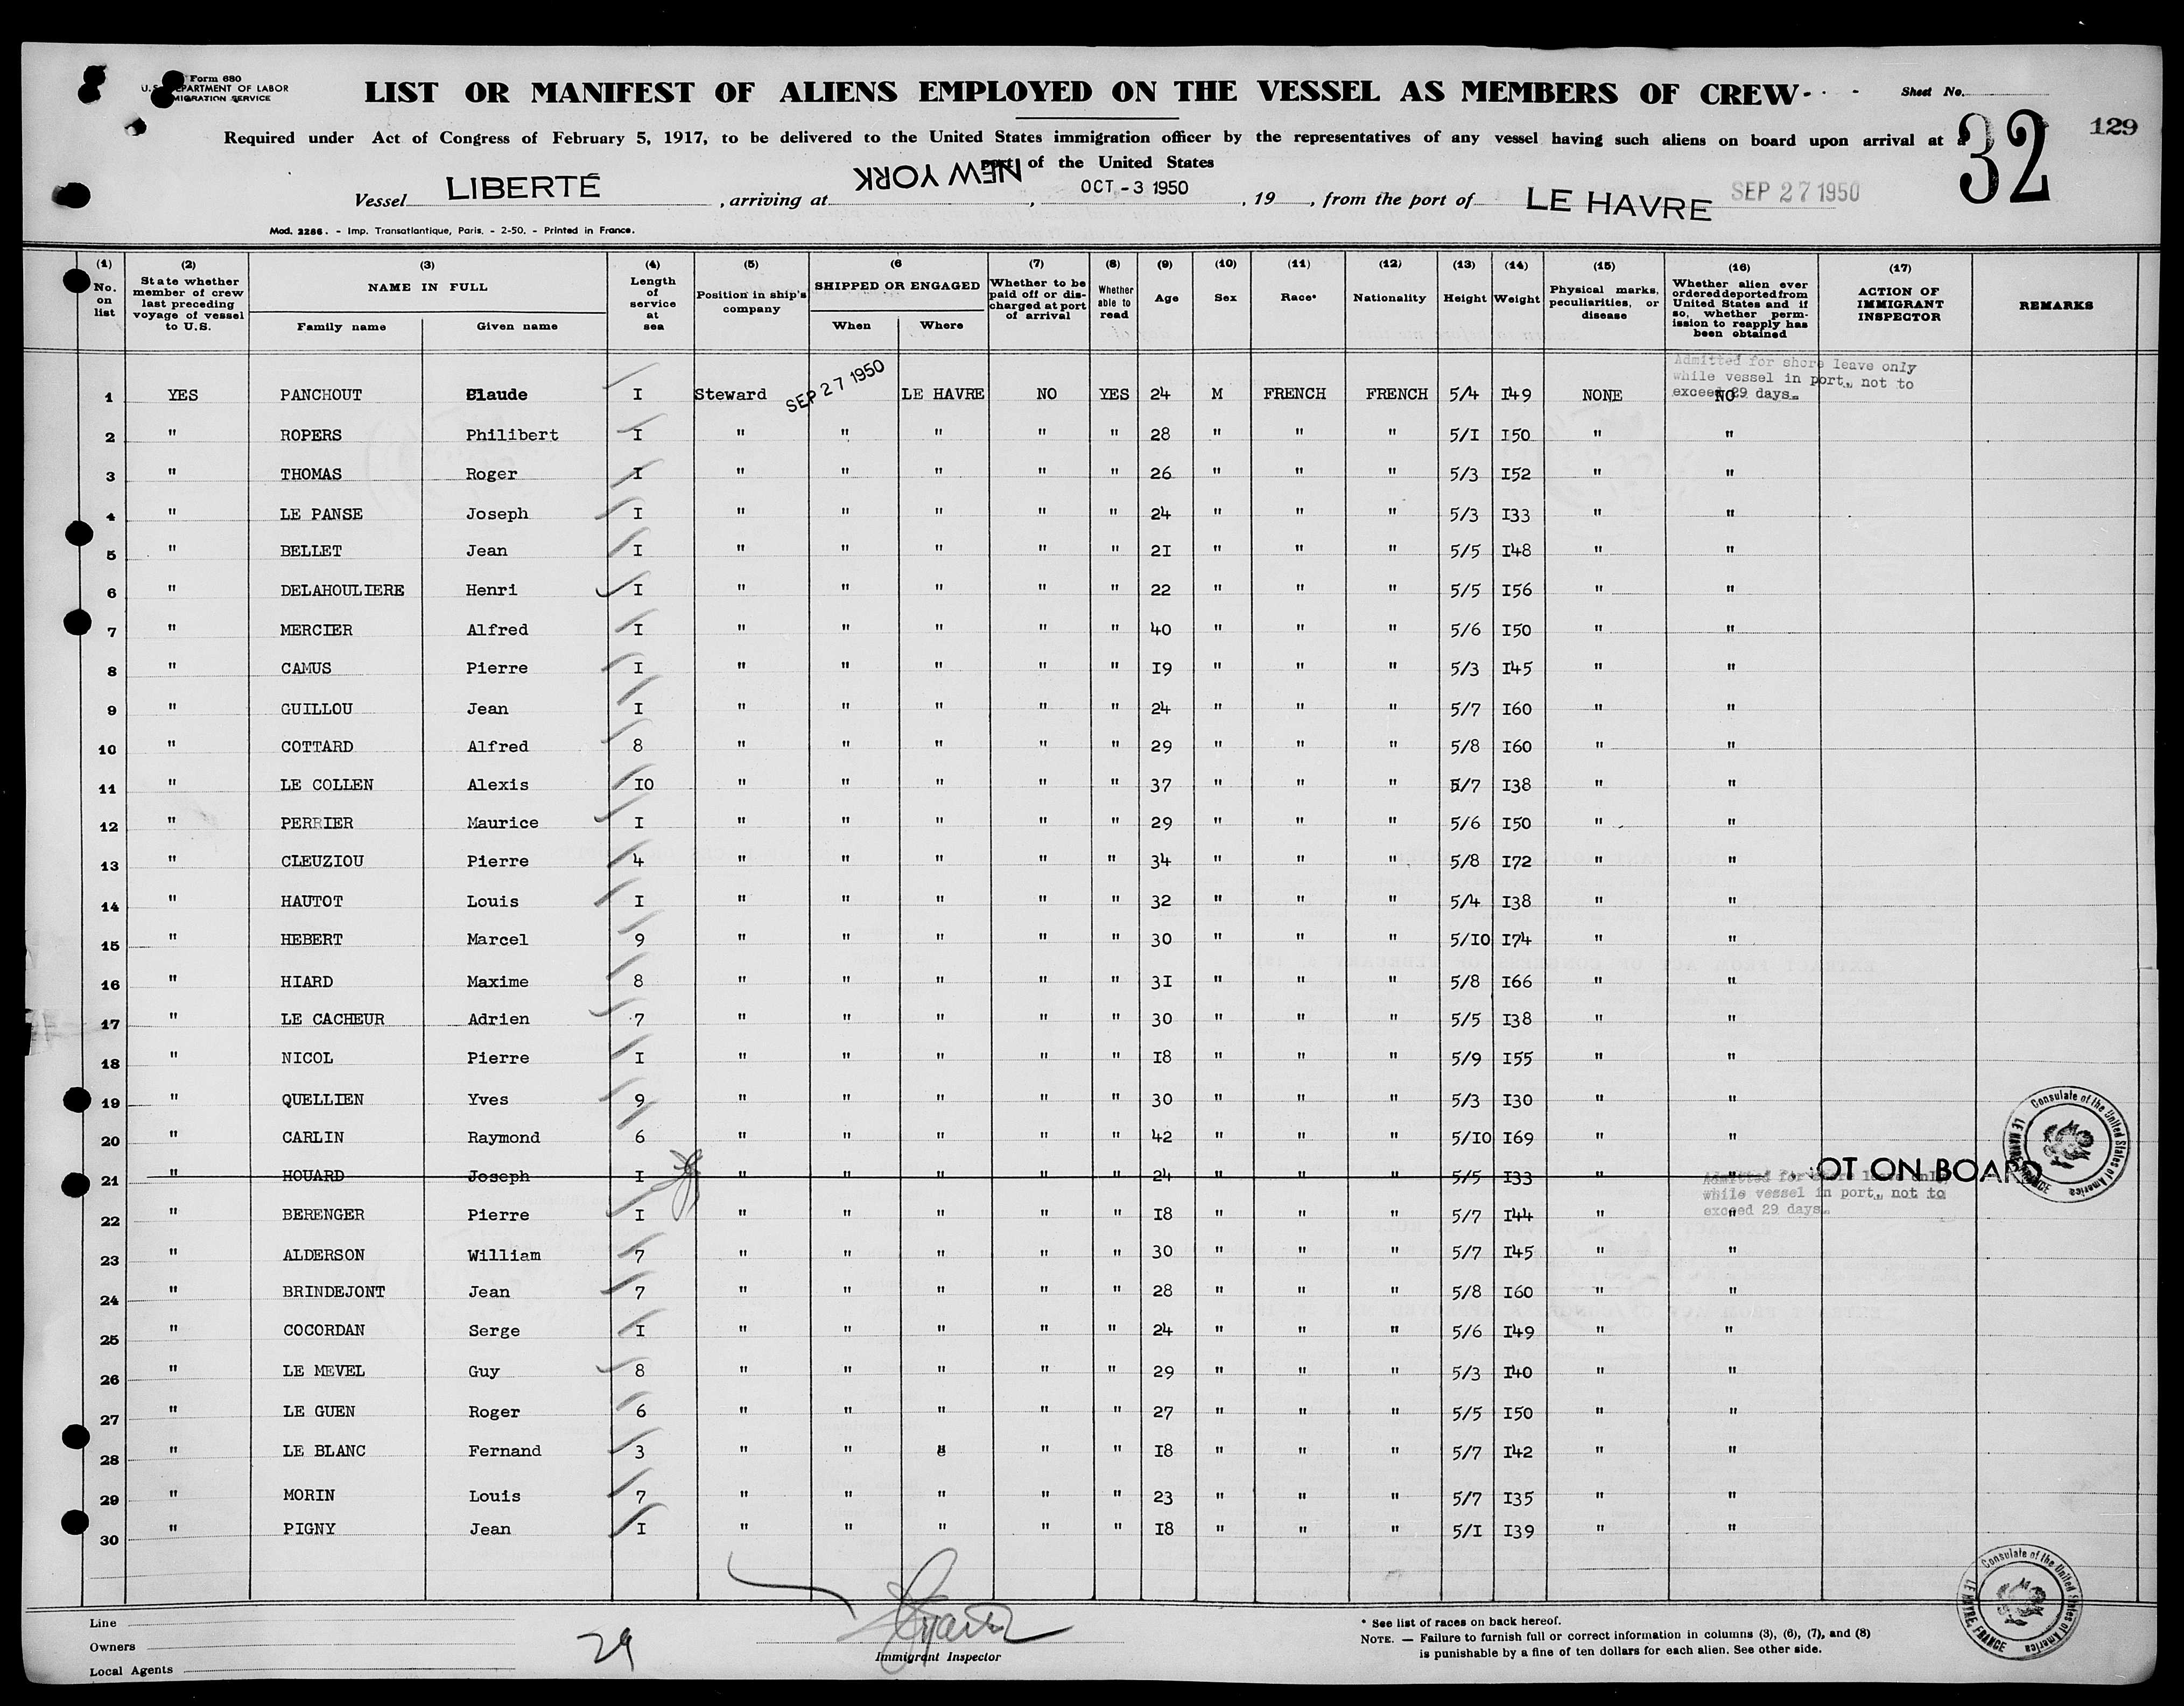 Form 680
U.S. DEPARTMENT OF LABOR
IMMIGRATION SERVICE
LIST OR MANIFEST OF ALIENS EMPLOYED ON THE VESSEL AS MEMBERS OF CREW
Sheet No.
32
129
Required under Act of Congress of February 5, 1917, to be delivered to the United States immigration officer by the representatives of any vessel having such aliens on board upon arrival at a
port of the United States
Vessel LIBERTÉ, arriving at NEW YORK, OCT - 3 1950, 19 , from the port of LE HAVRE SEP 27 1950
Mod. 2286. - Imp. Transatlantique, Paris. - 2-50. - Printed in France.
(1) No. on list (2) State whether member of crew last preceding voyage of vessel to U.S. (3) NAME IN FULL Family name Given name (4) Length of service at sea (5) Position in ship's company (6 SHIPPED OR ENGAGED When Where (7) Whether to be paid off or discharged at port of arrival (8) Whether able to read (9) Age (10) Sex (11) Race* (12) Nationality (13) Height (14) Weight (15) Physical marks, peculiarities, or disease (16) Whether alien ever ordered deported from United States and if so, whether permission to reapply has been obtained (17) ACTION OF IMMIGRANT INSPECTOR REMARKS
Admitted for shore leave only
while vessel in port, not to
exceed 29 days.
1 YES PANCHOUT Claude I Steward SEP 27 1950 LE HAVRE NO YES 24 M FRENCH FRENCH 5/4 I49 NONE NO
2 " ROPERS Philibert I " " " " " 28 " " " 5/I I50 " "
3 " THOMAS Roger I " " " " " 26 " " " 5/3 I52 " "
4 " LE PANSE Joseph I " " " " " 24 " " " 5/3 I33 " "
5 " BELLET Jean I " " " " " 2I " " " 5/5 I48 " "
6 " DELAHOULIERE Henri I " " " " " 22 " " " 5/5 I56 " "
7 " MERCIER Alfred I " " " " " 40 " " " 5/6 I50 " "
8 " CAMUS Pierre I " " " " " I9 " " " 5/3 I45 " "
9 " GUILLOU Jean I " " " " " 24 " " " 5/7 I60 " "
10 " COTTARD Alfred 8 " " " " " 29 " " " 5/8 I60 " "
11 " LE COLLEN Alexis I0 " " " " " 37 " " " 5/7 I38 " "
12 " PERRIER Maurice I " " " " " 29 " " " 5/6 I50 " "
13 " CLEUZIOU Pierre 4 " " " " " 34 " " " 5/8 I72 " "
14 " HAUTOT Louis I " " " " " 32 " " " 5/4 I38 " "
15 " HEBERT Marcel 9 " " " " " 30 " " " 5/I0 I74 " "
16 " HIARD Maxime 8 " " " " " 3I " " " 5/8 I66 " "
17 " LE CACHEUR Adrien 7 " " " " " 30 " " " 5/5 I38 " "
18 " NICOL Pierre I " " " " " I8 " " " 5/9 I55 " "
19 " QUELLIEN Yves 9 " " " " " 30 " " " 5/3 I30 " "
20 " CARLIN Raymond 6 " " " " " 42 " " " 5/I0 I69 " "
21 " HOUARD Joseph I " " " " " 24 " " " 5/5 I33 " " OT ON BOARD
Admitted for shore leave only
while vessel in port, not to
exceed 29 days.
22 " BERENGER Pierre I " " " " " I8 " " " 5/7 I44 " "
23 " ALDERSON William 7 " " " " " 30 " " " 5/7 I45 " "
24 " BRINDEJONT Jean 7 " " " " " 28 " " " 5/8 I60 " "
25 " COCORDAN Serge I " " " " " 24 " " " 5/6 I49 " "
26 " LE MEVEL Guy 8 " " " " " 29 " " " 5/3 I40 " "
27 " LE GUEN Roger 6 " " " " " 27 " " " 5/5 I50 " "
28 " LE BLANC Fernand 3 " " " " " I8 " " " 5/7 I42 " "
29 " MORIN Louis 7 " " " " " 23 " " " 5/7 I35 " "
30 " PIGNY Jean I " " " " " I8 " " " 5/I I39 " "
Consulate of the United States of America
LE HAVRE, FRANCE
Consulate of the United States of America
LE HAVRE, FRANCE
Line
Owners
Local Agents
29
Immigrant Inspector
* See list of races on back hereof.
NOTE. — Failure to furnish full or correct information in columns (3), (6), (7), and (8)
is punishable by a fine of ten dollars for each alien. See other side.